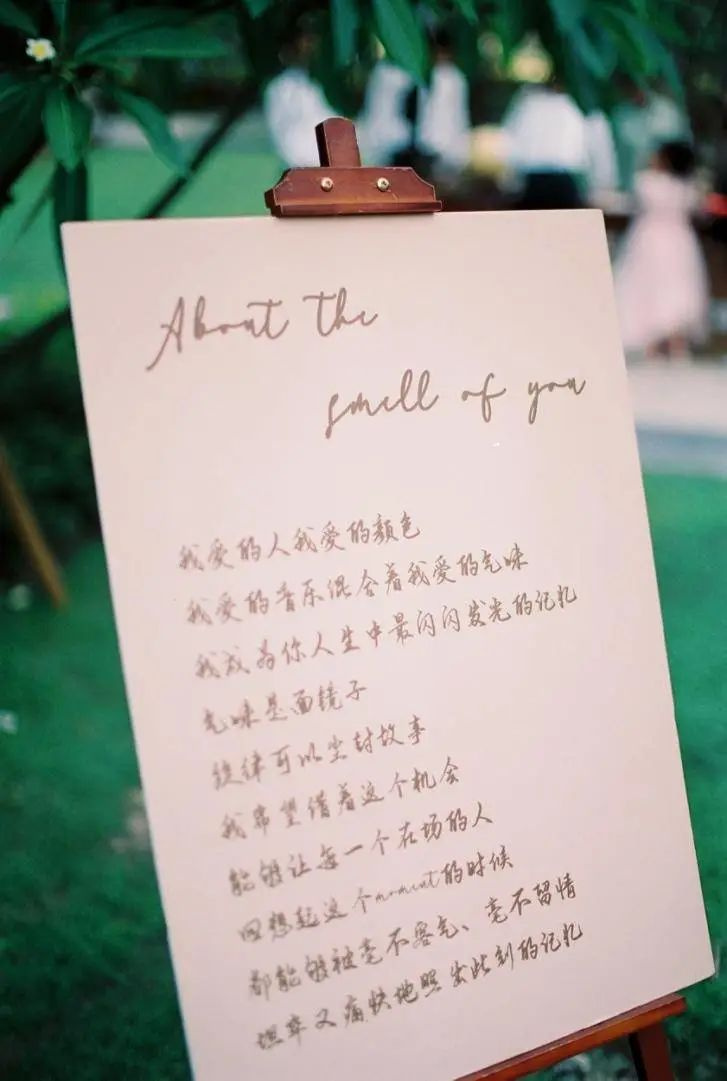 About the
smell of you
我爱的人我爱的颜色
我爱的音乐混合着我爱的气味
我成为你人生中最闪闪发光的记忆
气味是面镜子
旋律可以尘封故事
我希望借着这个机会
能够让每一个在场的人
回想起这个moment的时候
都能够被毫不客气、毫不留情
坦率又痛快地照出此刻的记忆